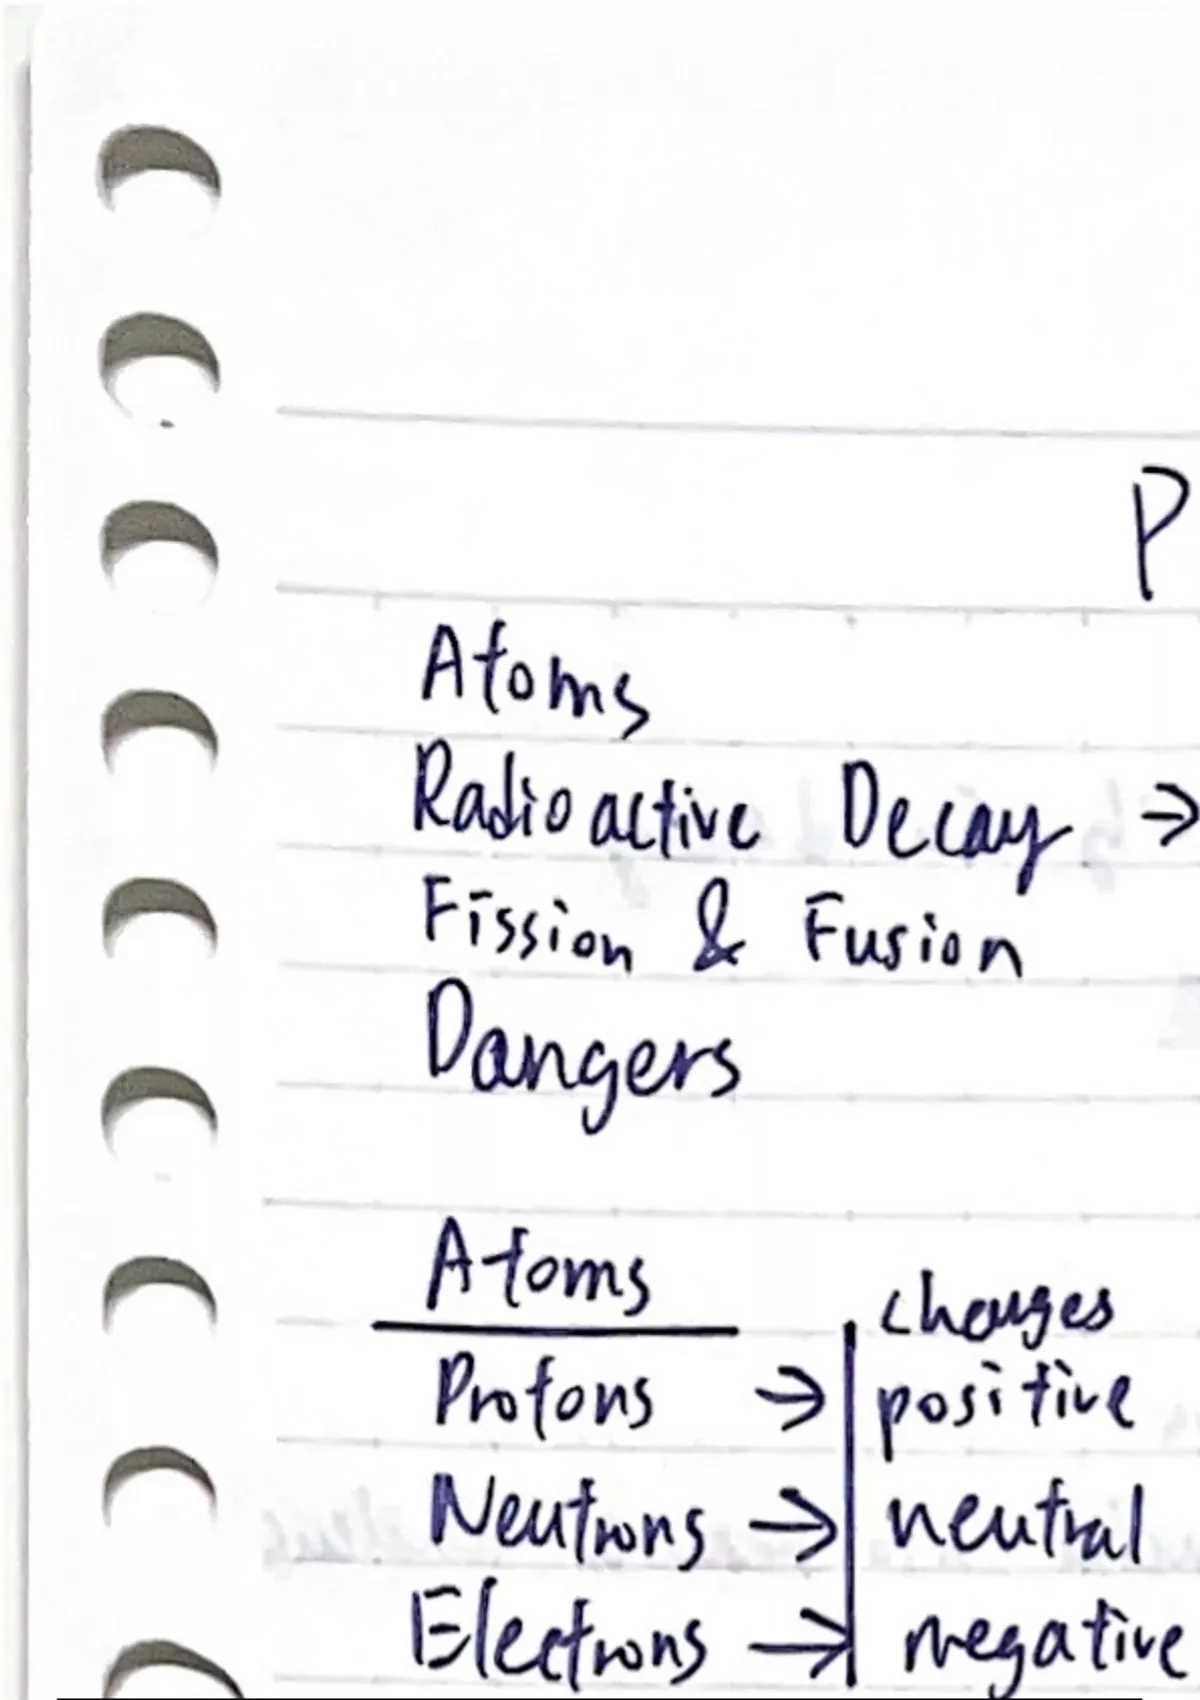 P
Atoms
Radioactive Decay →
Fission & Fusion
Dangers
Atoms
charges
Protons → positive
Neutrons → neutral
Electrons → negative